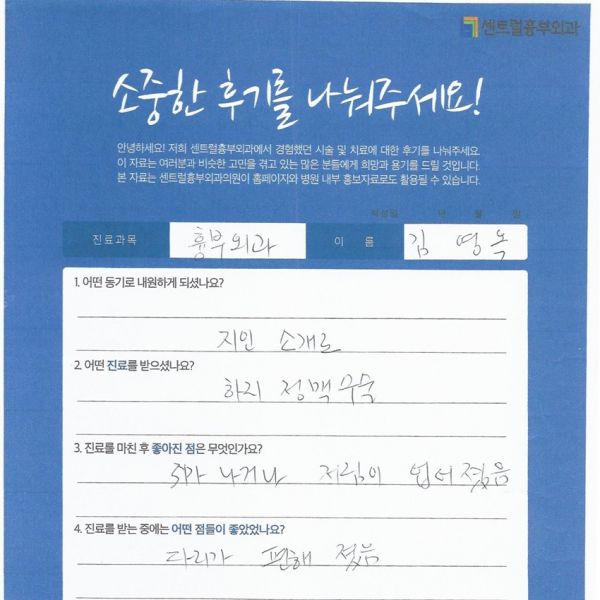 센트럴흉부외과
소중한 후기를 나눠주세요!
안녕하세요! 저희 센트럴흉부외과에서 경험했던 시술 및 치료에 대한 후기를 나눠주세요.
이 자료는 여러분과 비슷한 고민을 겪고 있는 많은 분들에게 희망과 용기를 드릴 것입니다.
본 자료는 센트럴흉부외과의원이 홈페이지와 병원 내부 홍보자료로도 활용될 수 있습니다.
작성일 년 월 일
진료과목 흉부외과 이 름 김 영 옥
1. 어떤 동기로 내원하게 되셨나요?
지인 소개로
2. 어떤 진료를 받으셨나요?
하지 정맥
3. 진료를 마친 후 좋아진 점은 무엇인가요?
저림이 업어졌음
4. 진료를 받는 중에는 어떤 점들이 좋았었나요?
다리가 편해 졌음